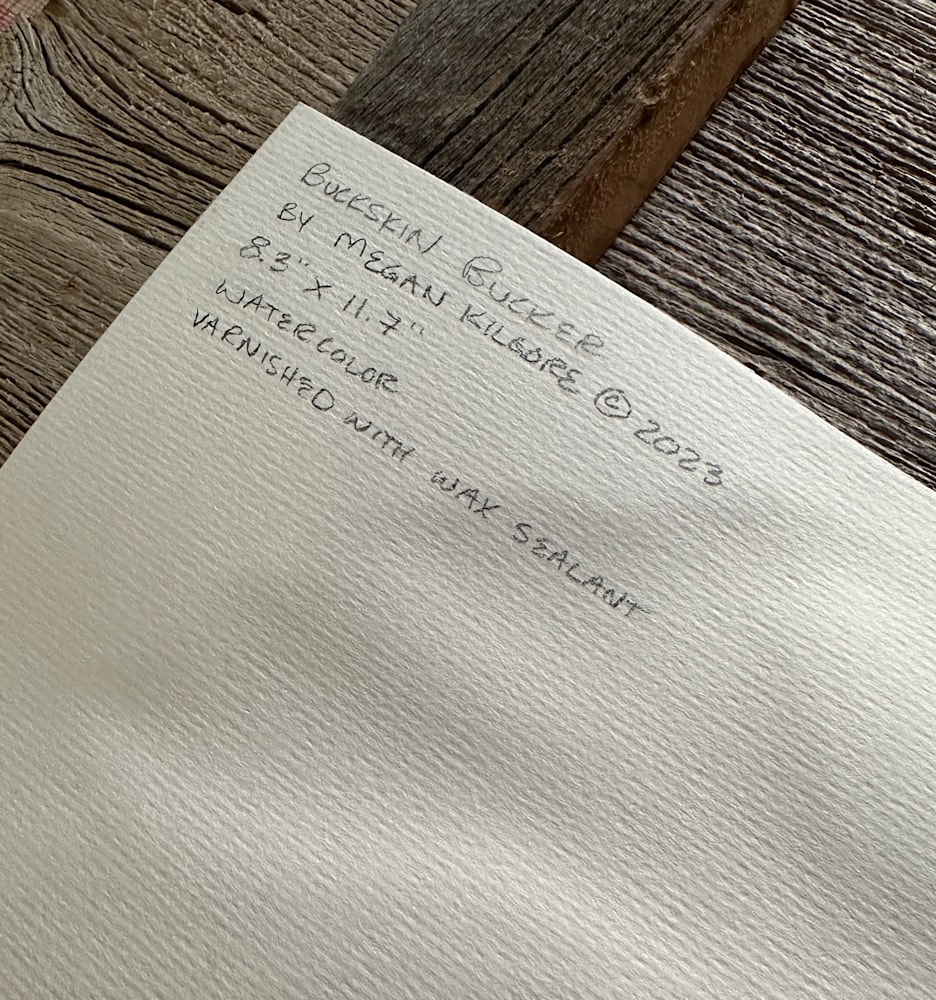 BUCKSKIN BUCKER
BY MEGAN KILGORE © 2023
8.3" X 11.7"
WATERCOLOR
VARNISHED WITH WAX SEALANT